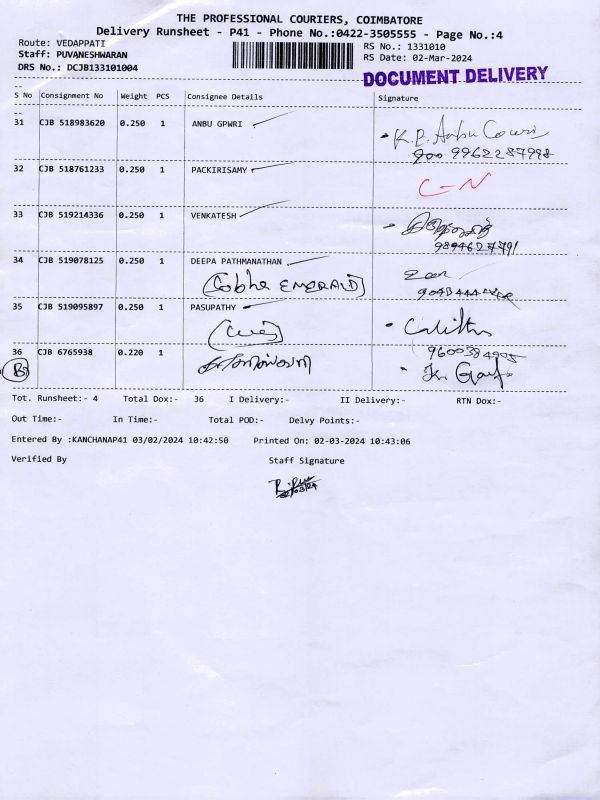 THE PROFESSIONAL COURIERS, COIMBATORE
Delivery Runsheet - P41 - Phone No.:0422-3505555 - Page No.:4
Route: VEDAPPATI
RS No.: 1331010
Staff: PUVANESHWARAN
RS Date: 02-Mar-2024
DRS No.: DCJB133101004
DOCUMENT DELIVERY
S No Consignment No Weight PCS Consignee Details Signature
31 CJB 518983620 0.250 1 ANBU GPWRI
K.P. Anbu Gowri
9962287998
32 CJB 518761233 0.250 1 PACKIRISAMY
C-N
33 CJB 519214336 0.250 1 VENKATESH
9894627791
34 CJB 519078125 0.250 1 DEEPA PATHMANATHAN
(Sobha EMERALD)
35 CJB 519095897 0.250 1 PASUPATHY
Lalitha
36 CJB 6765938 0.220 1
9600384905
Tot. Runsheet:- 4 Total Dox:- 36 I Delivery:- II Delivery:- RTN Dox:-
Out Time:- In Time:- Total POD:- Delvy Points:-
Entered By :KANCHANAP41 03/02/2024 10:42:50 Printed On: 02-03-2024 10:43:06
Verified By Staff Signature